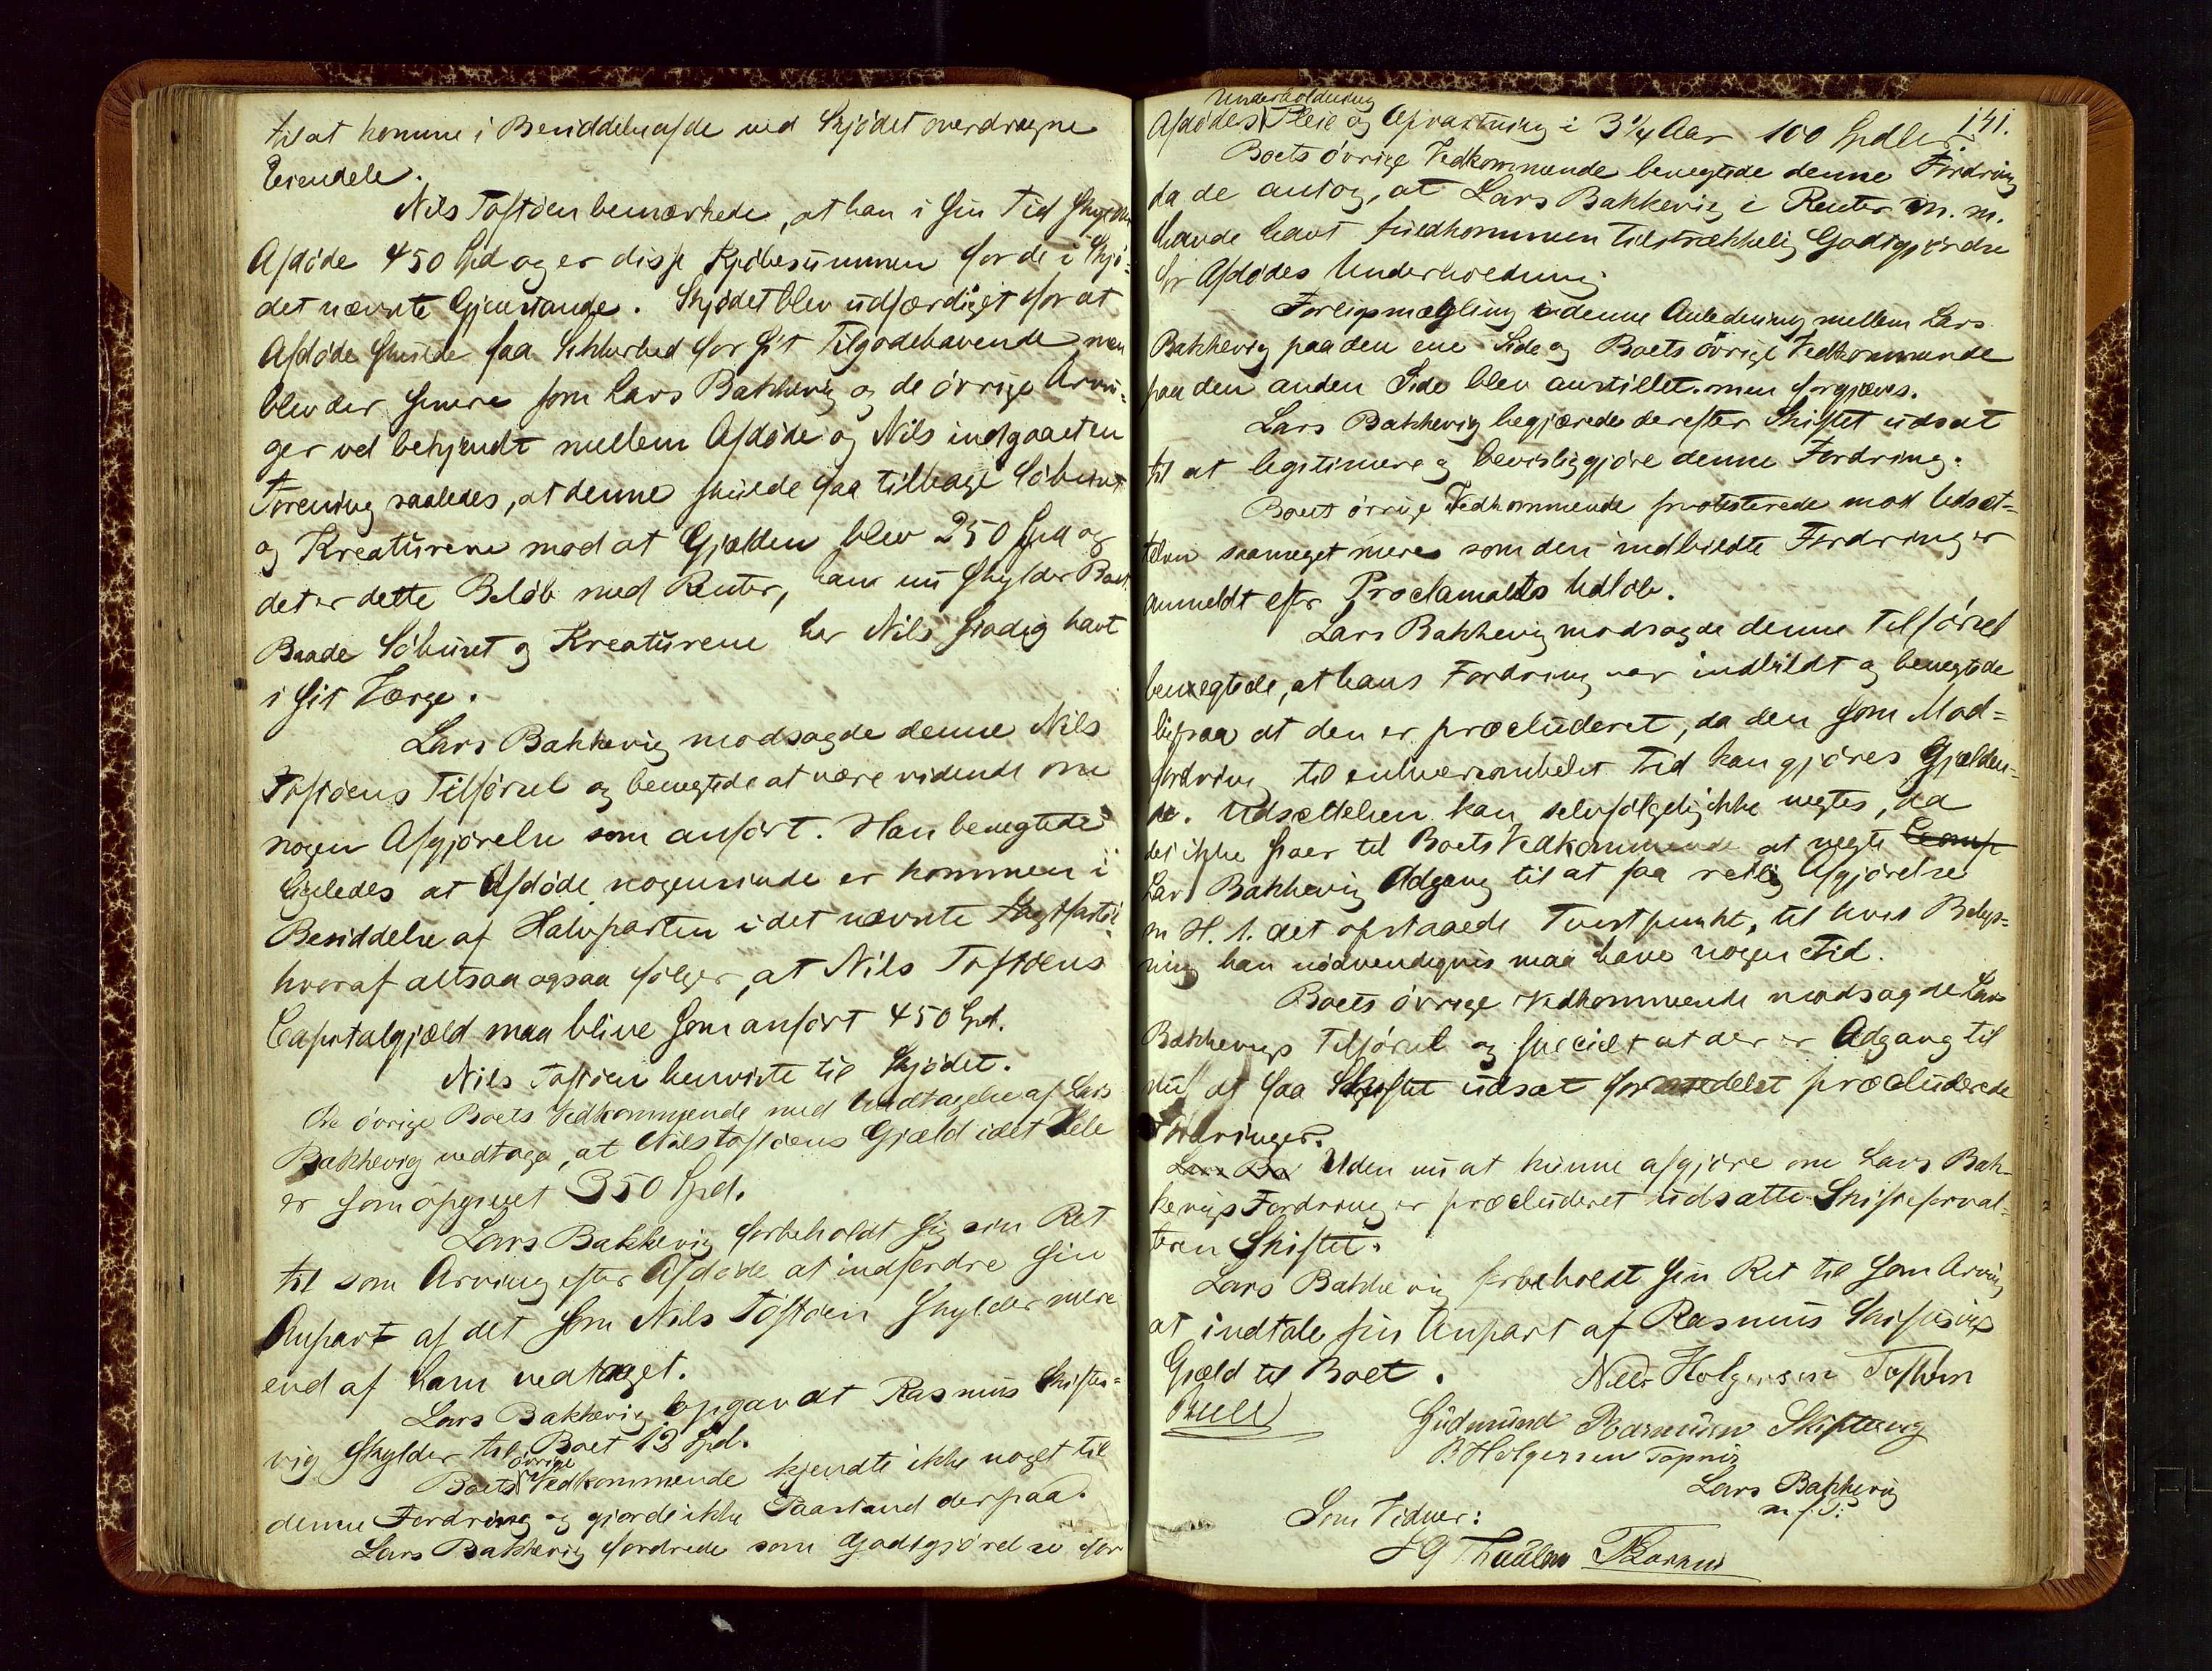 til at komme i Besiddelse af de ved Skjødet overdragne
Eiendele.
Nils Toftøen bemærkede, at han i sin Tid skyldte
Afdøde 450 Spd og er disse Kjøbesummen for de i Skjø-
det nævnte Gjenstande. Skjødet blev udfærdiget for at
Afdøde skulde faa Sikkerhed for sit Tilgodehavende, men
blev der senere som Lars Bakkevig og de øvrige Arvin-
ger vel bekjendt mellem Afdøde og Nils indgaaet en
Forening saaledes, at denne skulde faa tilbage Søhuset
og Kreaturene mod at Gjælden blev 250 Spd og
det er dette Beløb med Renter, han nu skylder Boet.
Baade Søhuset og Kreaturene har Nils stadig havt
i sit Værge.
Lars Bakkevig modsagde denne Nils
Toftøens Tilførsel og benegtede at være vidende om
nogen Afgjørelse som anført. Han benegtede
ligeledes at Afdøde nogensinde er kommen i
Besiddelse af Halvparten i det nævnte
hvoraf altsaa ogsaa følger, at Nils Toftøens
Capitalgjæld maa blive som anført 450 Spd.
Nils Toftøen henviste til Skjødet.
De øvrige Boets Vedkommende med Undtagelse af Lars
Bakkevig vedtoge, at Nils Toftøens Gjæld i det Hele
er som opgivet 350 Spd.
Lars Bakkevig forbeholdt sig sin Ret
til som Arving efter Afdøde at indfordre sin
Anpart af det som Nils Toftøen skylder mere
end af ham vedtaget.
Lars Bakkevig opgav at Rasmus Skiftes-
vig skylder til Boet 13 Spd.
Boets øvrige Vedkommende kjendte ikke noget til
denne Fordring og gjorde ikke Paastand derpaa.
Lars Bakkevig fordrede som Godtgjørelse for
141.
Afdødes Underholdning Pleie og Opvartning i 3 1/4 Aar 100 Spdlr.
Boets øvrige Vedkommende benegtede denne Fordring
da de antog, at Lars Bakkevig i Renter m. m.
havde havt fuldkommen tilstrækkelig Godtgjørelse
for Afdødes Underholdning.
Forligsmægling i denne Anledning mellem Lars
Bakkevig paa den ene Side og Boets øvrige Vedkommende
paa den anden Side blev anstillet men forgjæves.
Lars Bakkevig begjærede derefter Skiftet udsat
til at legitimere og bevisliggjøre denne Fordring.
Boets øvrige Vedkommende protesterede mod Udsæt-
telsen saameget mere som den indbildte Fordring er
anmeldt efter Proclamaets Udløb.
Lars Bakkevig modsagde denne Tilførsel
benegtede, at hans Fordring var indbildt og benegtede
ligesaa at den er præcluderet, da den som Mod-
fordring til enhversomhelst Tid kan gjøres gjælden-
de. Udsættelsen kan selvfølgelig ikke negtes, da
det ikke staar til Boets Vedkommende at negte
Lars Bakkevig Adgang til at faa retlig Afgjørelse
m H. t. det opstaaede Tvistpunkt, til hvis Belys-
ning han nødvendigvis maa have nogen Tid.
Boets øvrige Vedkommende modsagde Lars
Bakkevigs Tilførsel og specielt at der er Adgang til
nu at faa Skiftet udsat formedelst præcluderede
Fordringer.
Uden nu at kunne afgjøre om Lars Bak-
kevigs Fordring er præcluderet udsatte Skifteforval-
teren Skiftet.
Lars Bakkevig forbeholdt sin Ret til som Arving
at indtale sin Anpart af Rasmus Skiftesvigs
Gjæld til Boet.
Nils Holgersen Toftøen
Bull
Gudmund Rasmusen Skiftesvig
P. Holgersen
Lars Bakkevig
m. f. P.
Som Vidner: